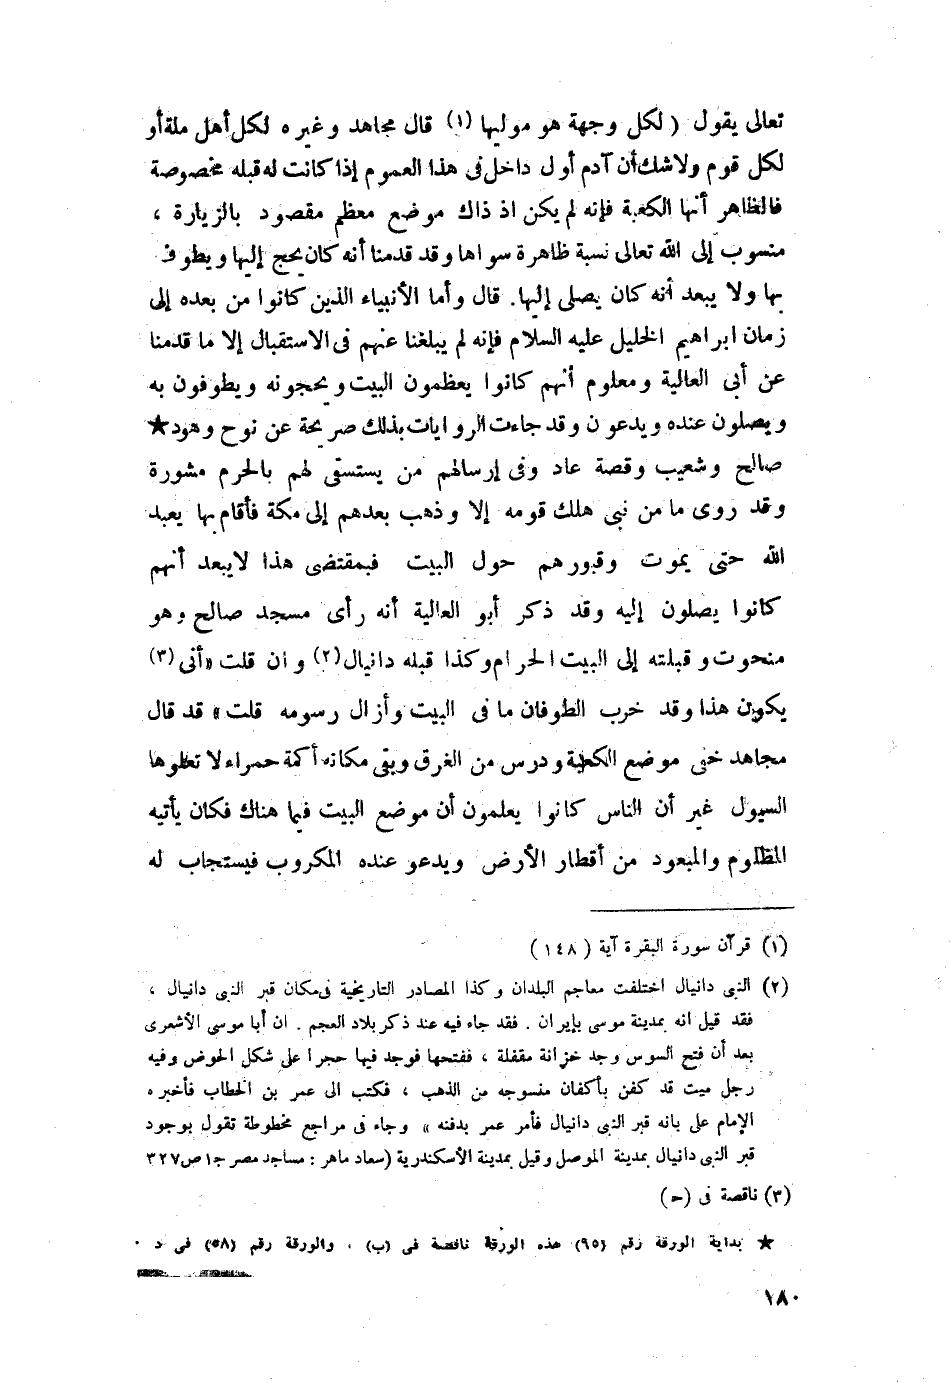 تعالى يقول ( لكل وجهة هو موليها (١) قال مجاهد وغيره لكل أهل ملة أو
لكل قوم ولاشك أن آدم أول داخل فى هذا العموم إذا كانت له قبله مخصوصة
فالظاهر أنها الكعبة فإنه لم يكن اذ ذاك موضع معظم مقصود بالزيارة ،
منسوب إلى الله تعالى نسبة ظاهرة سواها وقد قدمنا أنه كان يحج إليها ويطوف
بها ولا يبعد أنه كان يصلى إليها. قال وأما الأنبياء الذين كانوا من بعده إلى
زمان ابراهيم الخليل عليه السلام فإنه لم يبلغنا عنهم فى الاستقبال إلا ما قدمنا
عن أبى العالية ومعلوم أنهم كانوا يعظمون البيت ويحجونه ويطوفون به
ويصلون عنده ويدعون وقد جاءت الروايات بذلك صريحة عن نوح وهود★
صالح وشعيب وقصة عاد وفى إرسالهم من يستسقى لهم بالحرم مشورة
وقد روى ما من نبى هلك قومه إلا وذهب بعدهم إلى مكة فأقام بها يعبد
الله حتى يموت وقبورهم حول البيت فبمقتضى هذا لايبعد أنهم
كانوا يصلون إليه وقد ذكر أبو العالية أنه رأى مسجد صالح وهو
منحوت وقبلته إلى البيت الحرام وكذا قبله دانيال(٢) وان قلت «أنى (٣)
يكون هذا وقد خرب الطوفان ما فى البيت وأزال رسومه قلت» قد قال
مجاهد خفى موضع الكعبة ودرس من الغرق وبقى مكانه أكمة حمراء لا تعلوها
السيول غير أن الناس كانوا يعلمون أن موضع البيت فيما هناك فكان يأتيه
المظلوم والمبعود من أقطار الأرض ويدعو عنده المكروب فيستجاب له
(١) قرآن سورة البقرة آية ( ١٤٨ )
(٢) النبى دانيال اختلفت معاجم البلدان وكذا المصادر التاريخية فى مكان قبر النبى دانيال ،
فقد قيل انه بمدينة موسى بإيران . فقد جاء فيه عند ذكر بلاد العجم . ان أبا موسى الأشعرى
بعد أن فتح السوس وجد خزانة مقفلة ، ففتحها فوجد فيها حجرا على شكل الحوض وفيه
رجل ميت قد كفن بأكفان منسوجه من الذهب ، فكتب الى عمر بن الخطاب فأخبره
الإمام على بانه قبر النبى دانيال فأمر عمر بدفنه » وجاء فى مراجع مخطوطة تقول بوجود
قبر النبى دانيال بمدينة الموصل وقيل بمدينة الأسكندرية (سعاد ماهر : مساجد مصر ج١ ص٣٢٧
(٣) ناقصة فى (ح)
★ بداية الورقة رقم (٩٥) هذه الورقة ناقصة فى (ب) ، والورقة رقم (٥٨) فى د ٠
١٨٠